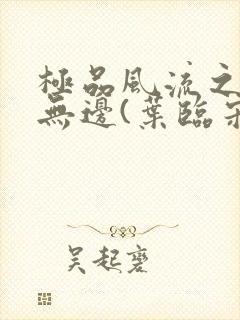 極品風流之
無邊(葉臨
吴起袤